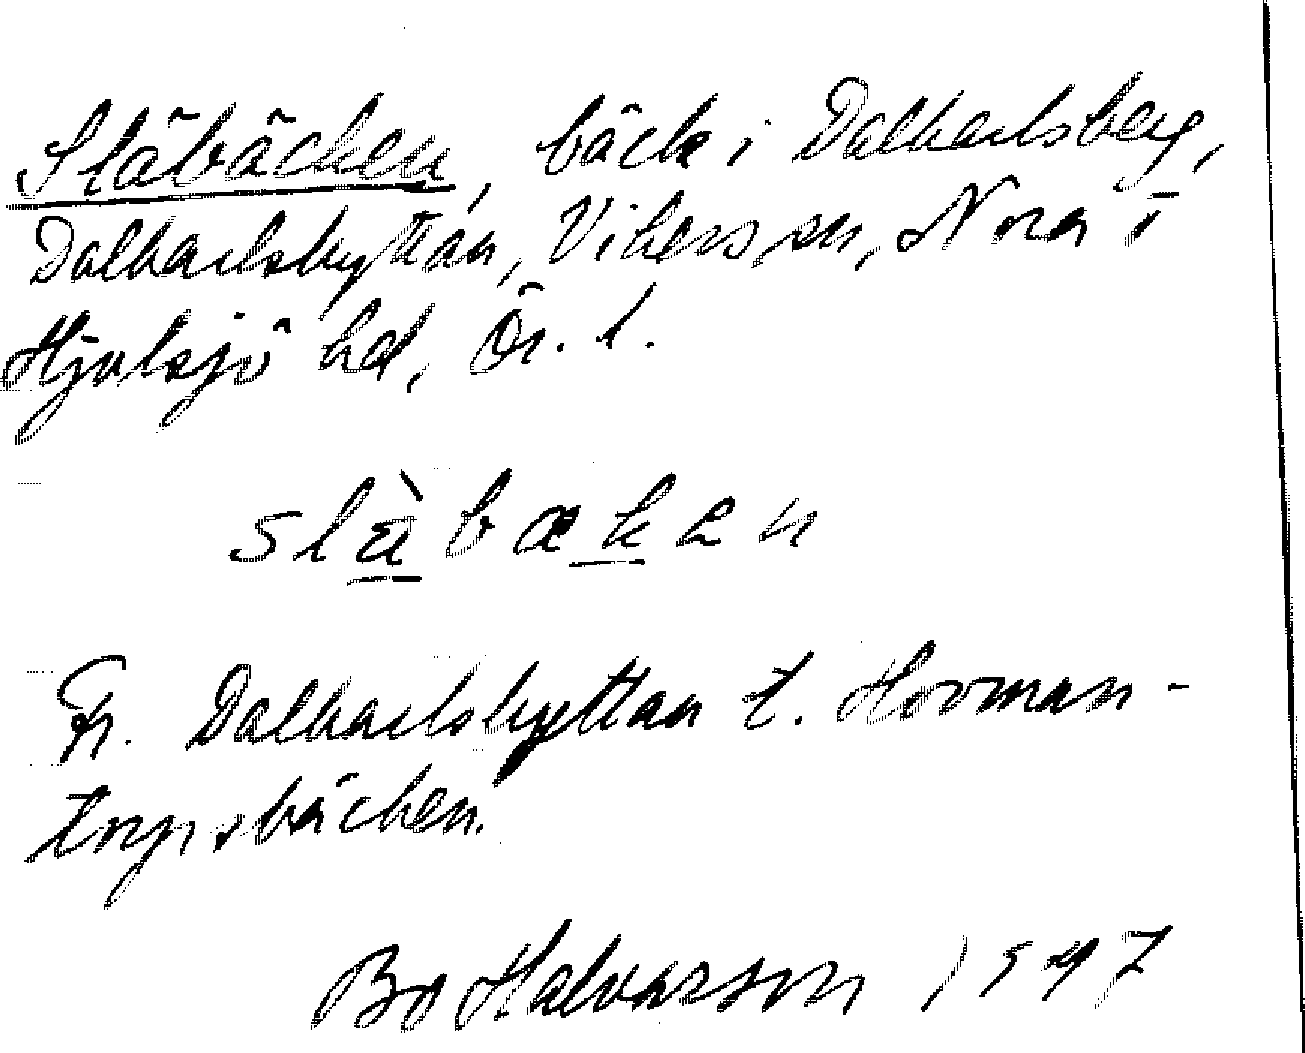 Släbäcken, bäck i Dalkarlsberg,
Dalkarlshyttan, Vikers sn, Nora o
Hjulsjö hd, Ör. l.
slàbækən
Fr. Dalkarlshyttan t. Hovman-
torpsbäcken.
Bo Halvarson 1947